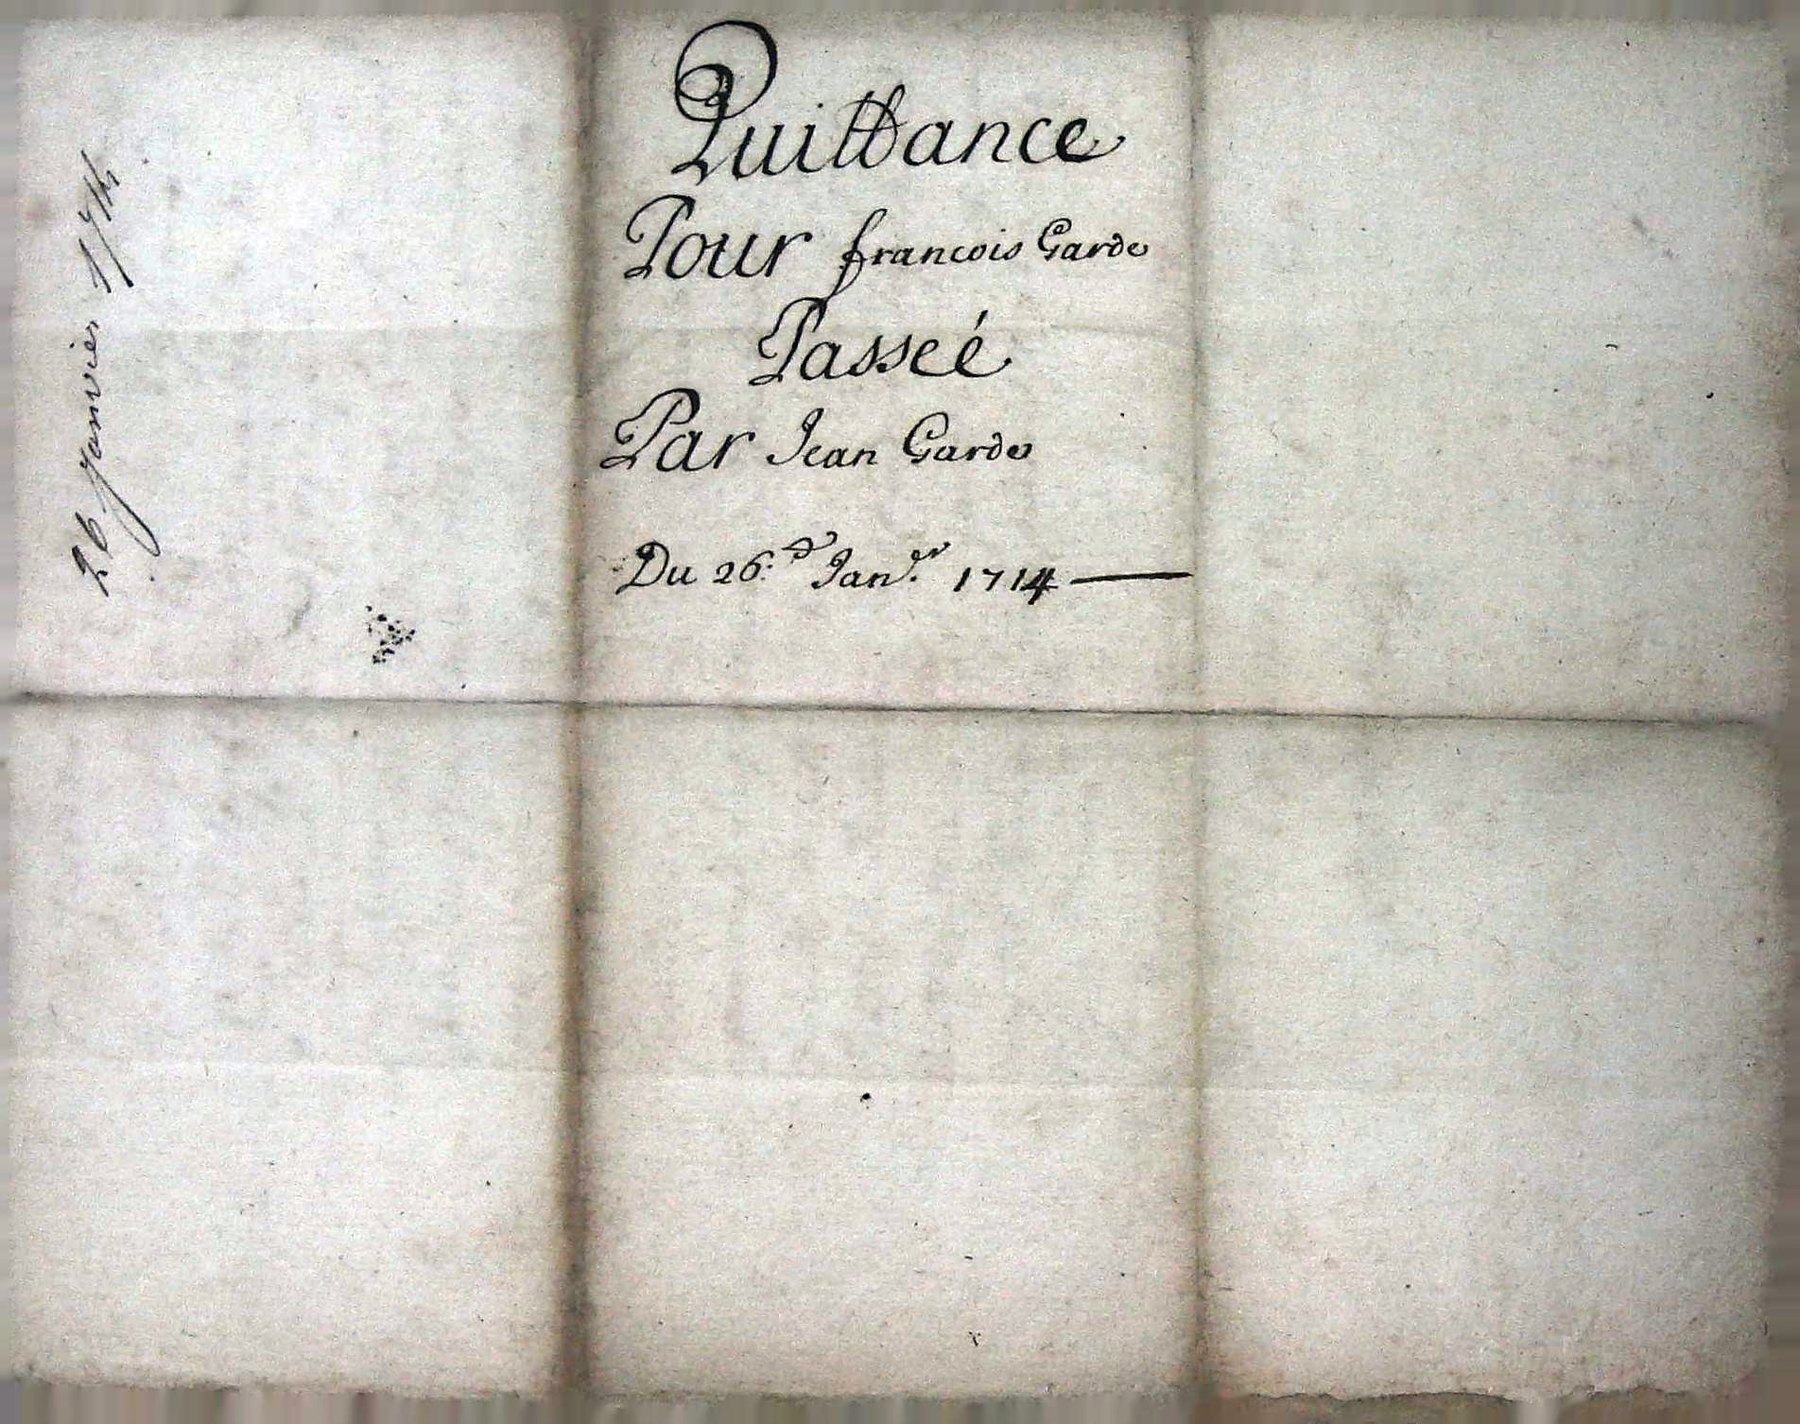 Quittance
Pour francois Garde
Passeé
Par Jean Garde
Du 26.e Janv.er 1714
26 Janvier 1714